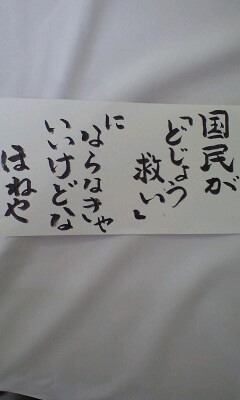 国民が
「どじょう
救い」
に
ならなきゃ
いいけどな
ほねや